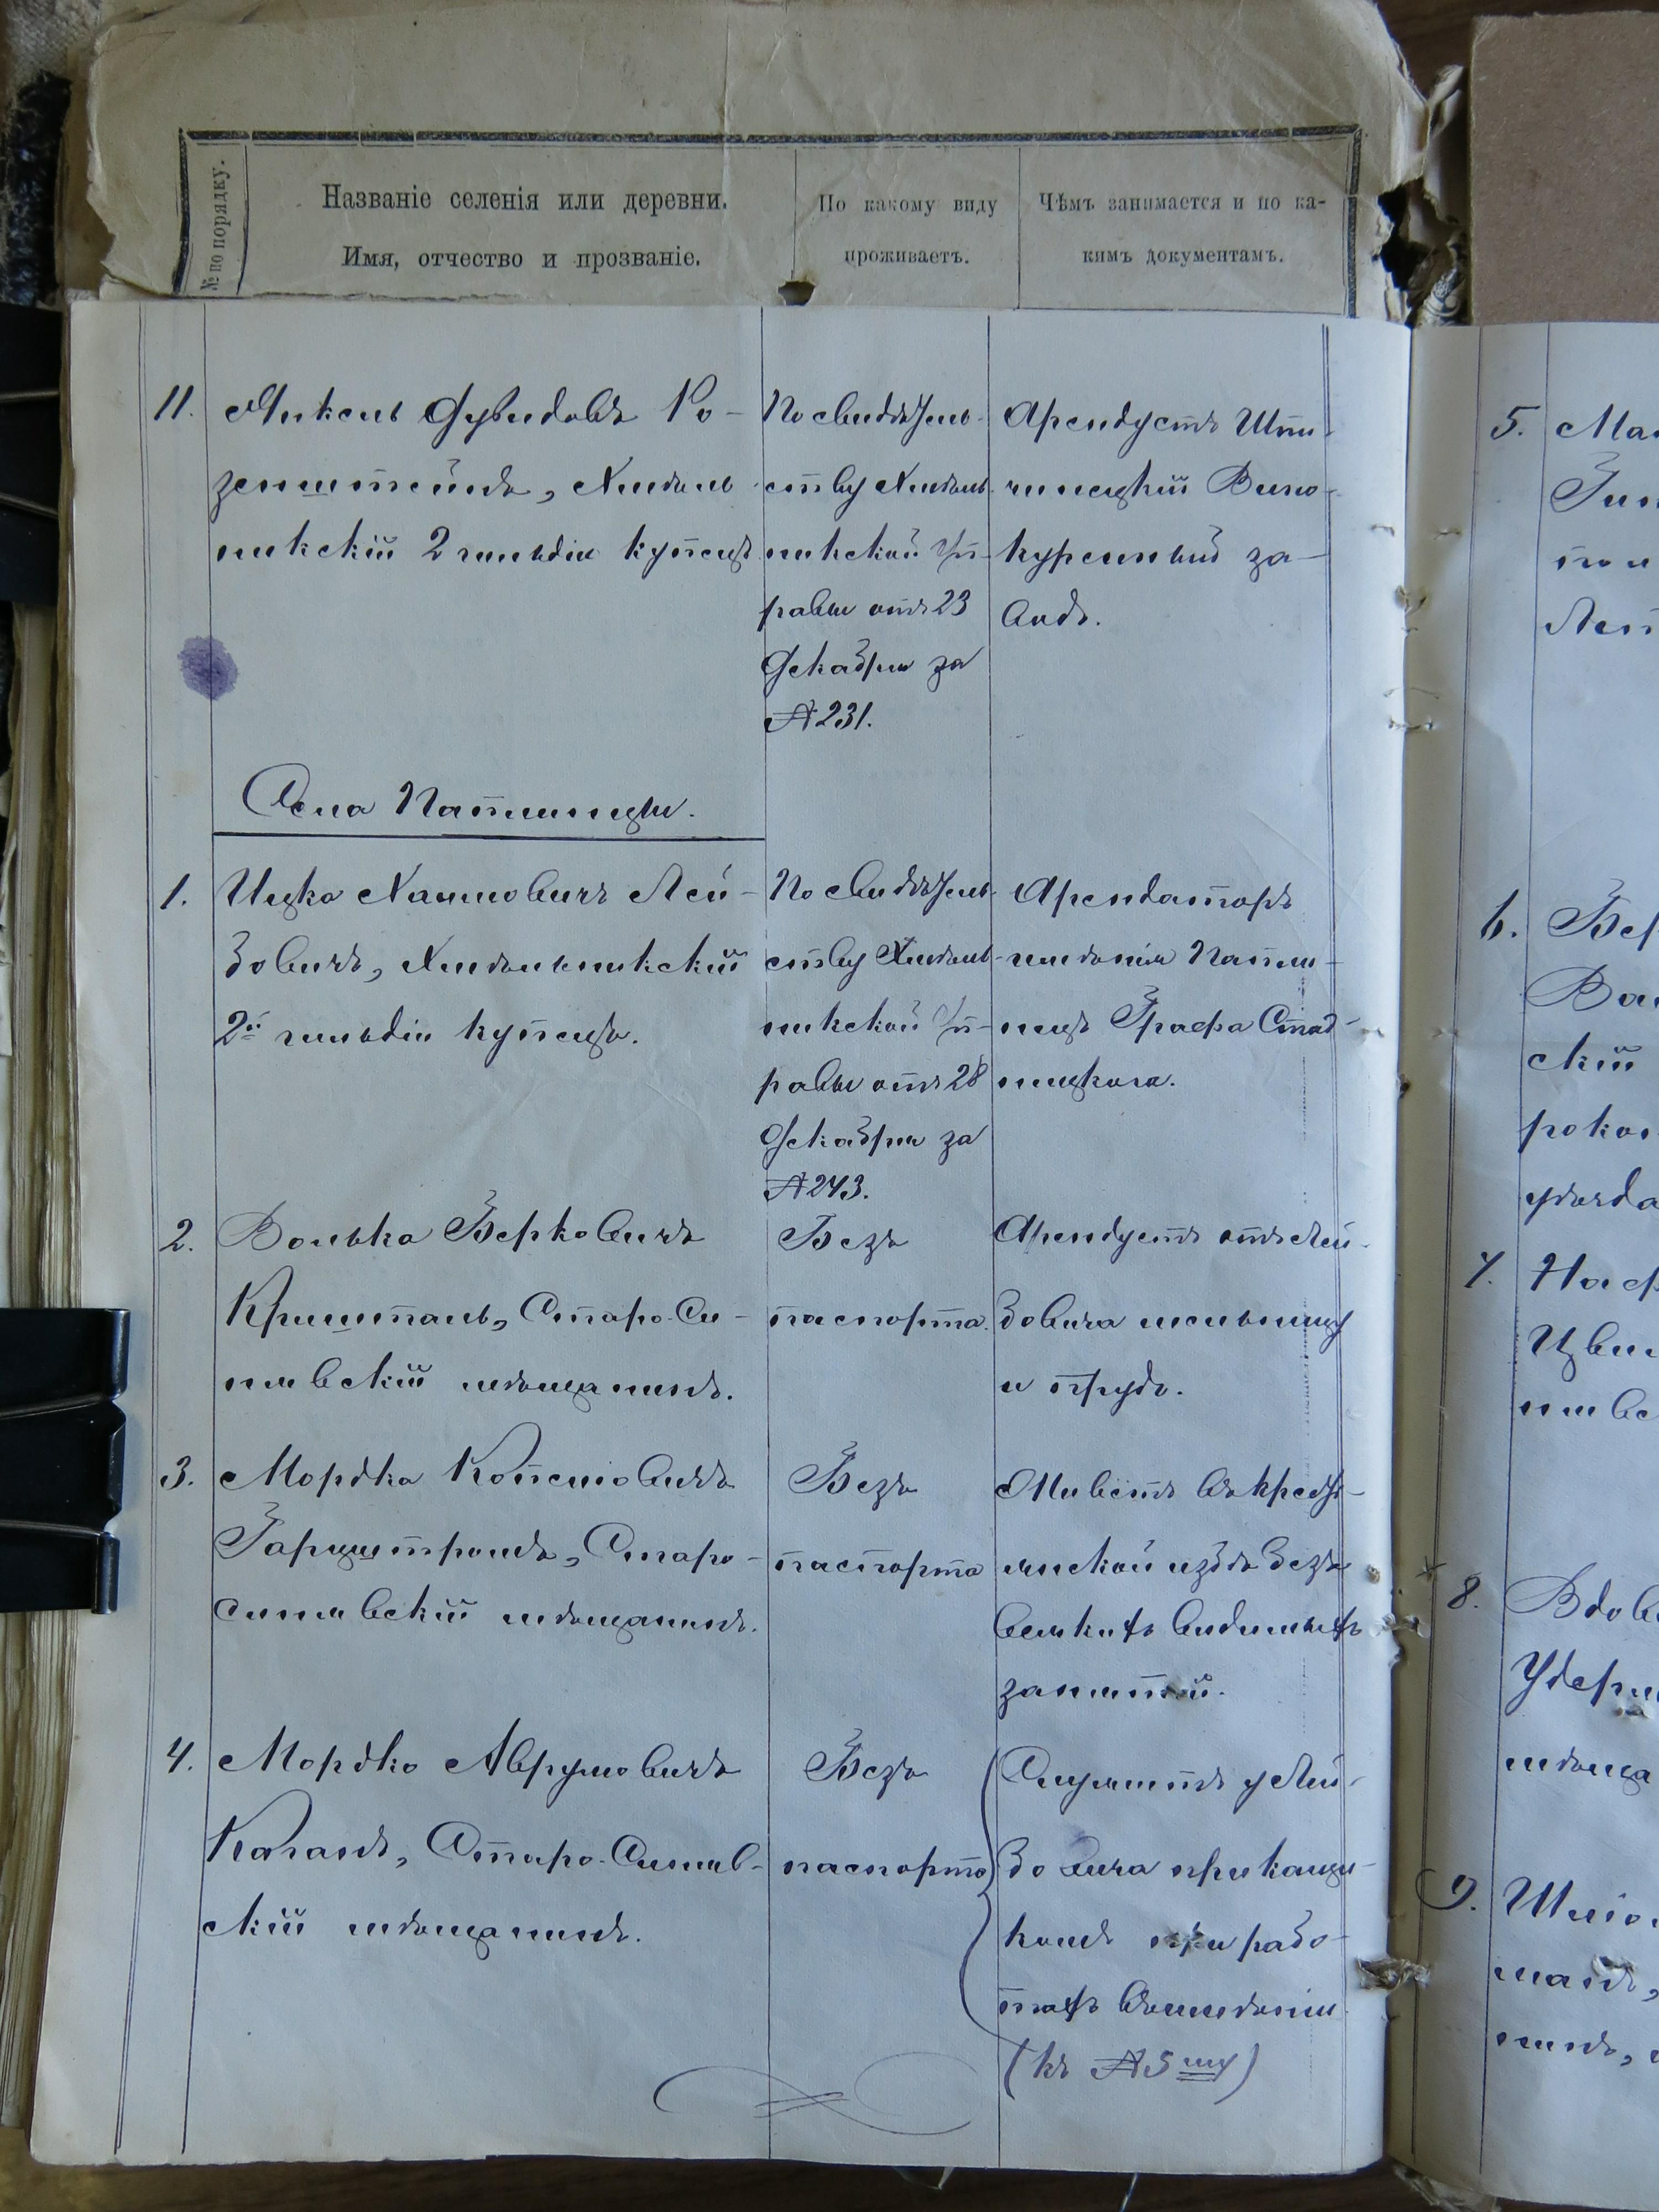 № по порядку.
Названіе селенія или деревни.
Имя, отчество и прозваніе.
По какому виду
проживаетъ.
Чѣмъ занимается и по ка-
кимъ документамъ.
11.
Янкель Дувидовъ Ро-
зенштейнъ, Хмѣль-
никскій 2 гильдіи купецъ
По свидѣтель-
ству Хмѣль-
никской Уп-
равы отъ 23
Декабря за
№ 231.
Арендуетъ
чинецкій Вино-
куренный за-
водъ.
Села Патринецъ.
1.
Ицко Хаимовичъ Лей-
бовичъ, Хмѣльникскій
2й гильдіи купецъ.
По свидѣтель-
ству Хмѣль-
никской Уп-
равы отъ 28
Декабря за
№ 243.
Арендаторъ
имѣнія
нецъ Графа Стад-
ницкого.
2.
Волько Берковичъ
Кришталь, Старо-Си-
нявскій мѣщанинъ.
Безъ
паспорта.
Арендуетъ отъ Лей-
бовича мельницу
и прудъ.
3.
Мордко Копелiовичъ
Старо-
синявскій мѣщанинъ.
Безъ
паспорта
Живетъ въ кресть-
янской избѣ безъ
всякихъ видимыхъ
занятій.
4.
Мордко Аврумовичъ
Каганъ, Старо-Синяв-
скій мѣщанинъ.
Безъ
паспорта
Служитъ у Лей-
бовича прикащи-
комъ при рабо-
тахъ въ имѣніи
(къ № 5му)
5.
6.
Бер
Ва
скій
уѣзда
7.
8.
Вдов
мѣща
9.